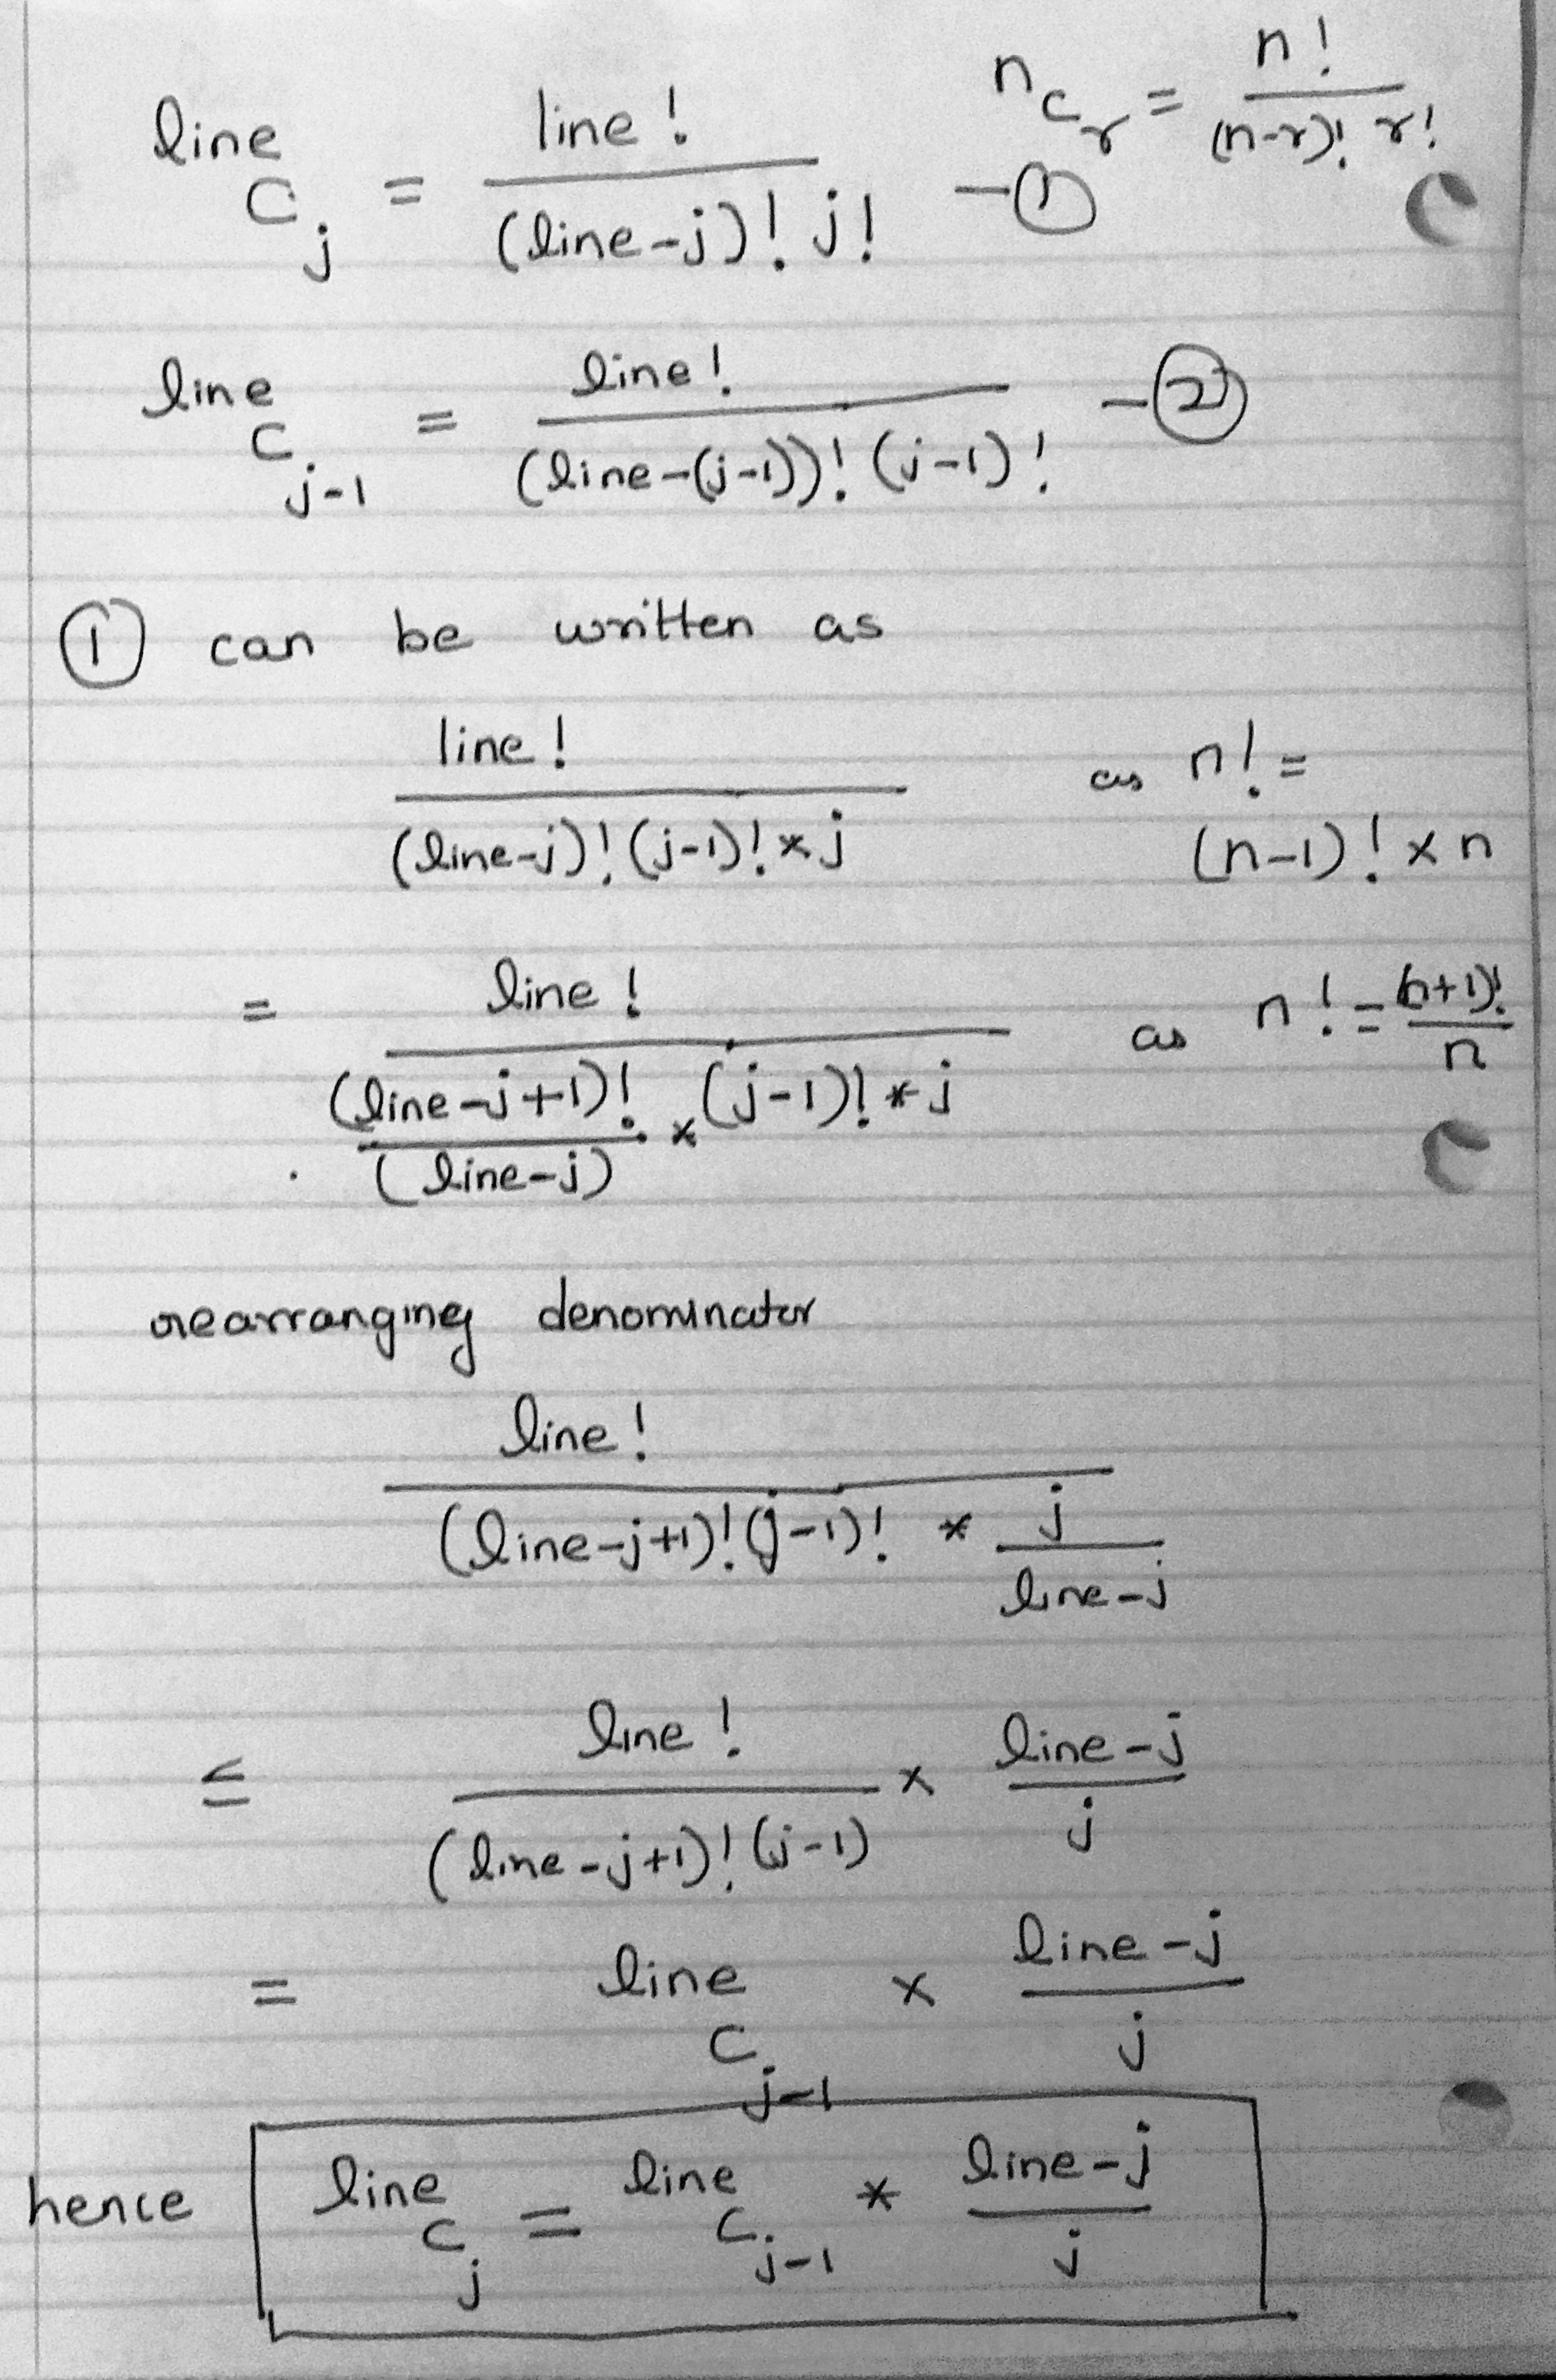 line C j = line! / (line-j)! j! -① nCr = n! / (n-r)! r!
line C j-1 = line! / (line-(j-1))! (j-1)! -②
① can be written as
line! / (line-j)! (j-1)! * j as n! = (n-1)! × n
= line! / (line-j+1)! / (line-j) * (j-1)! * j as n! = (n+1)! / n
rearranging denominator
line! / (line-j+1)! (j-1)! * j / line-j
≤ line! / (line-j+1)! (j-1) × line-j / j
= line C j-1 × line-j / j
hence line C j = line C j-1 * line-j / j